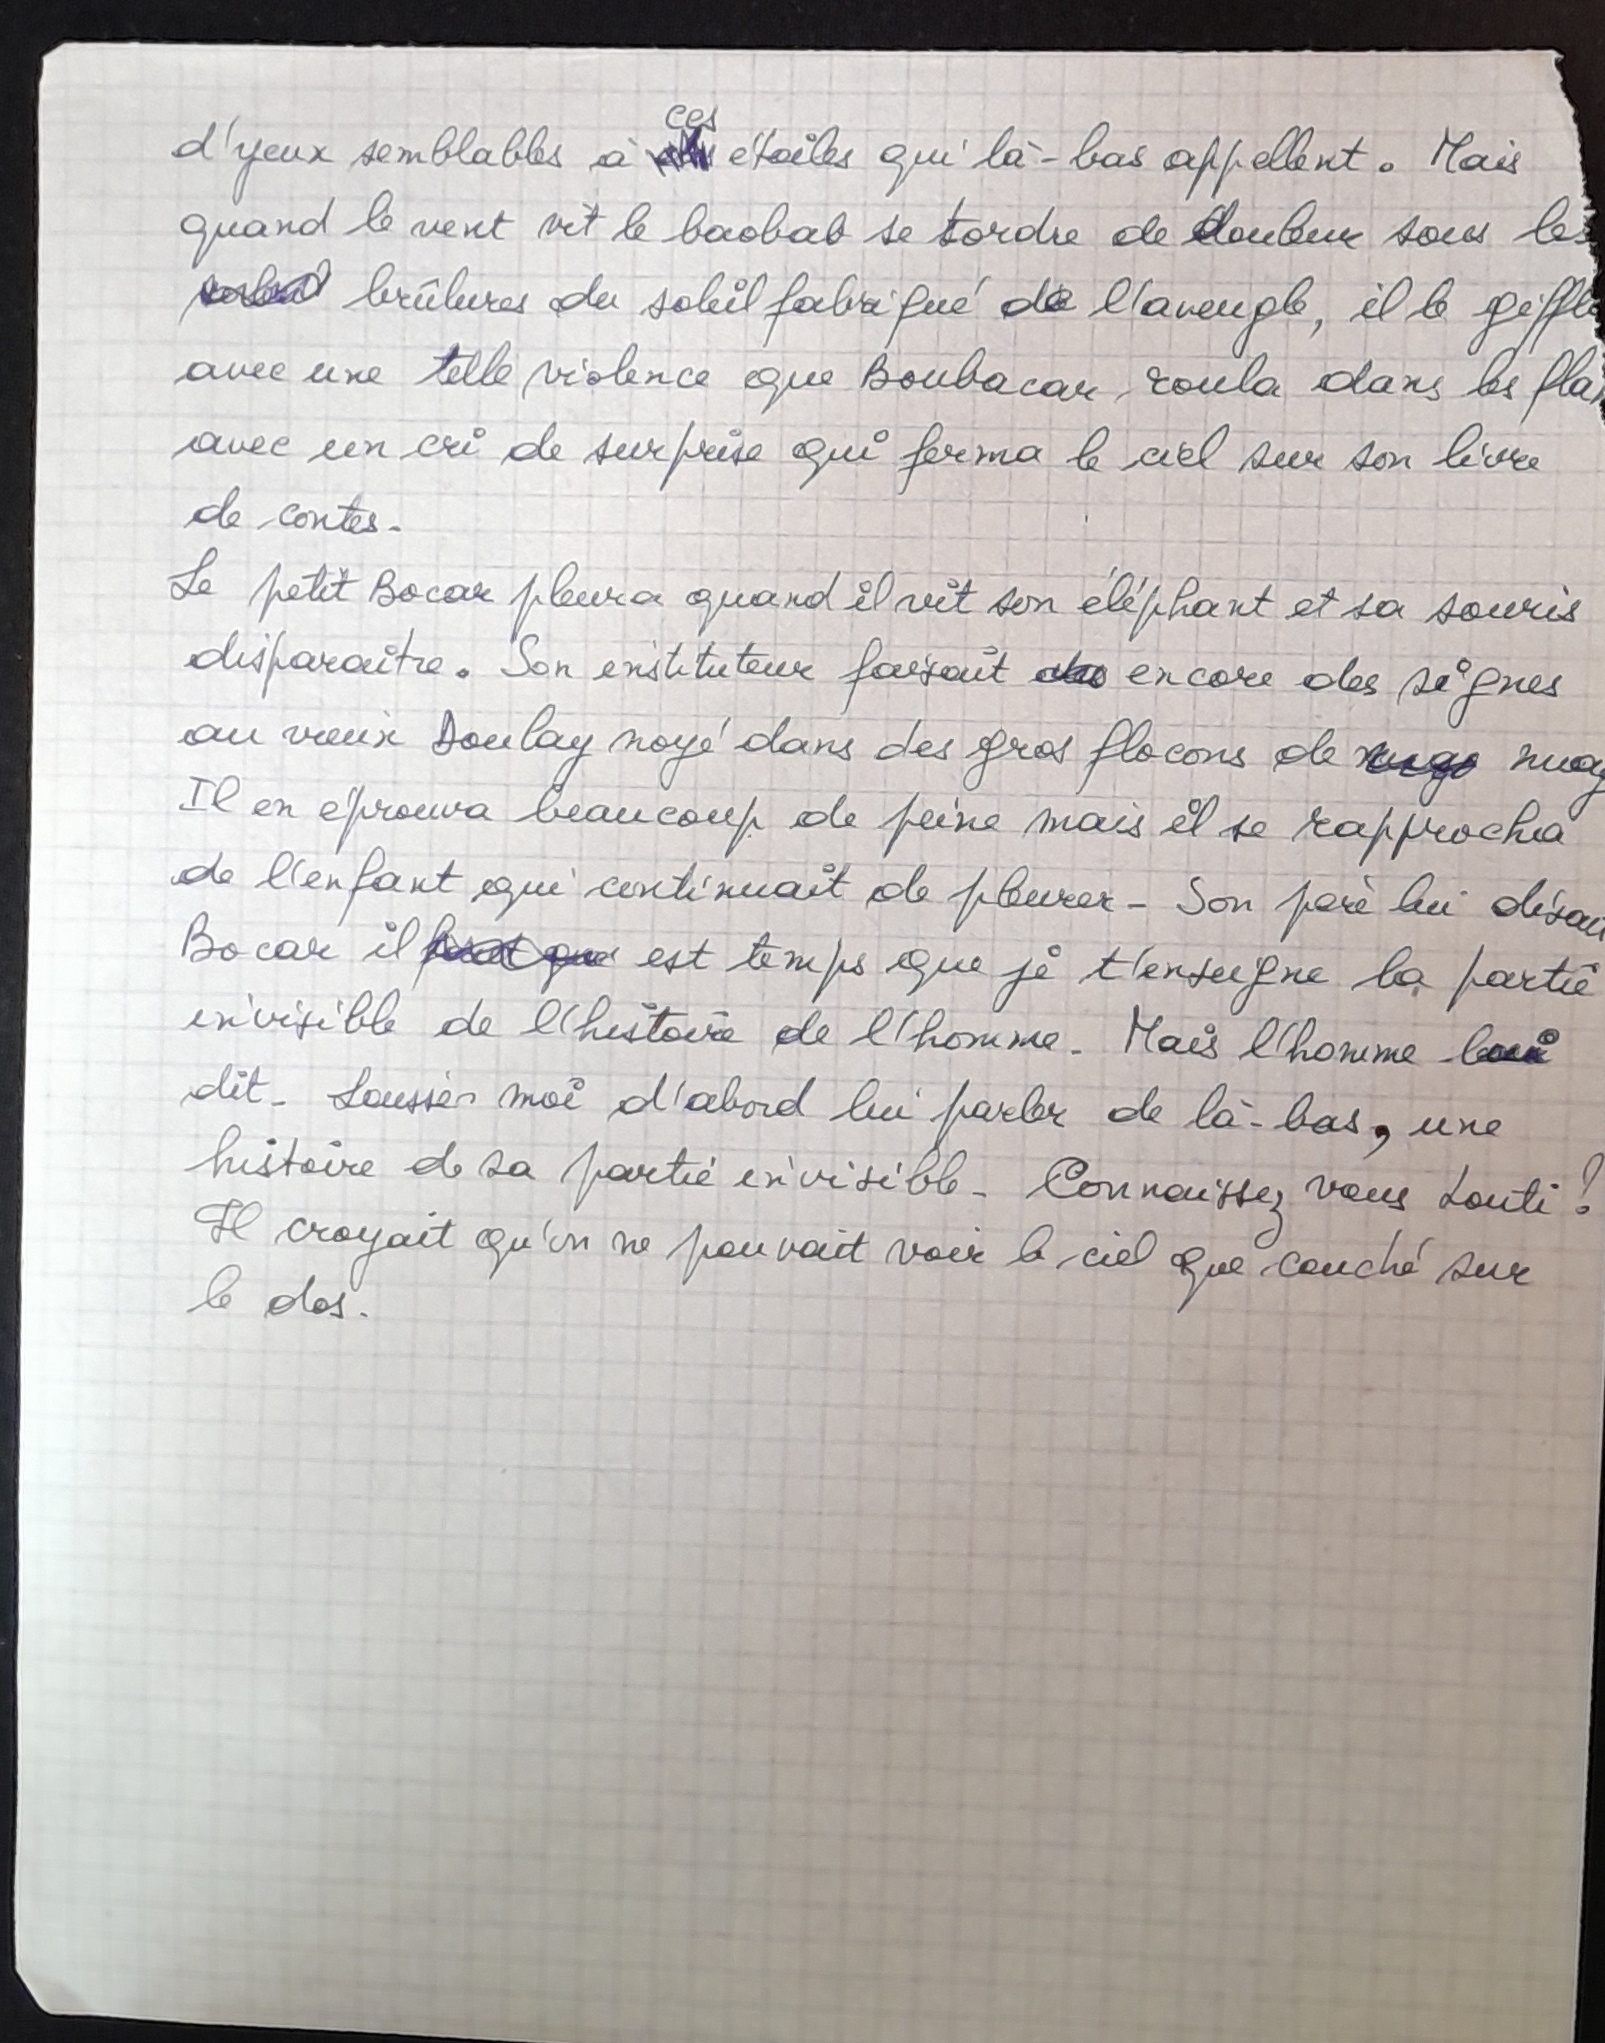 d'yeux semblables à ces étoiles qui là-bas appellent. Mais
quand le vent vit le baobab se tordre de douleur sous les
brûlures du soleil fabriqué de l'aveugle, il le giffla
avec une telle violence que Boubacar roula dans les fla
avec un cri de surprise qui ferma le ciel sur son livre
de contes.
Le petit Bocar pleura quand il vit son éléphant et sa souris
disparaître. Son instituteur faisait encore des signes
au vieux Doulay noyé dans des gros flocons de nuag
Il en éprouva beaucoup de peine mais il se rapprocha
de l'enfant qui continuait de pleurer - Son père lui disait
Bocar il est temps que je t'enseigne la partie
invisible de l'histoire de l'homme. Mais l'homme lui
dit - Laisser moi d'abord lui parler de là-bas, une
histoire de sa partie invisible - Connaissez vous Louti ?
Il croyait qu'on ne pouvait voir le ciel que couché sur
le dos.